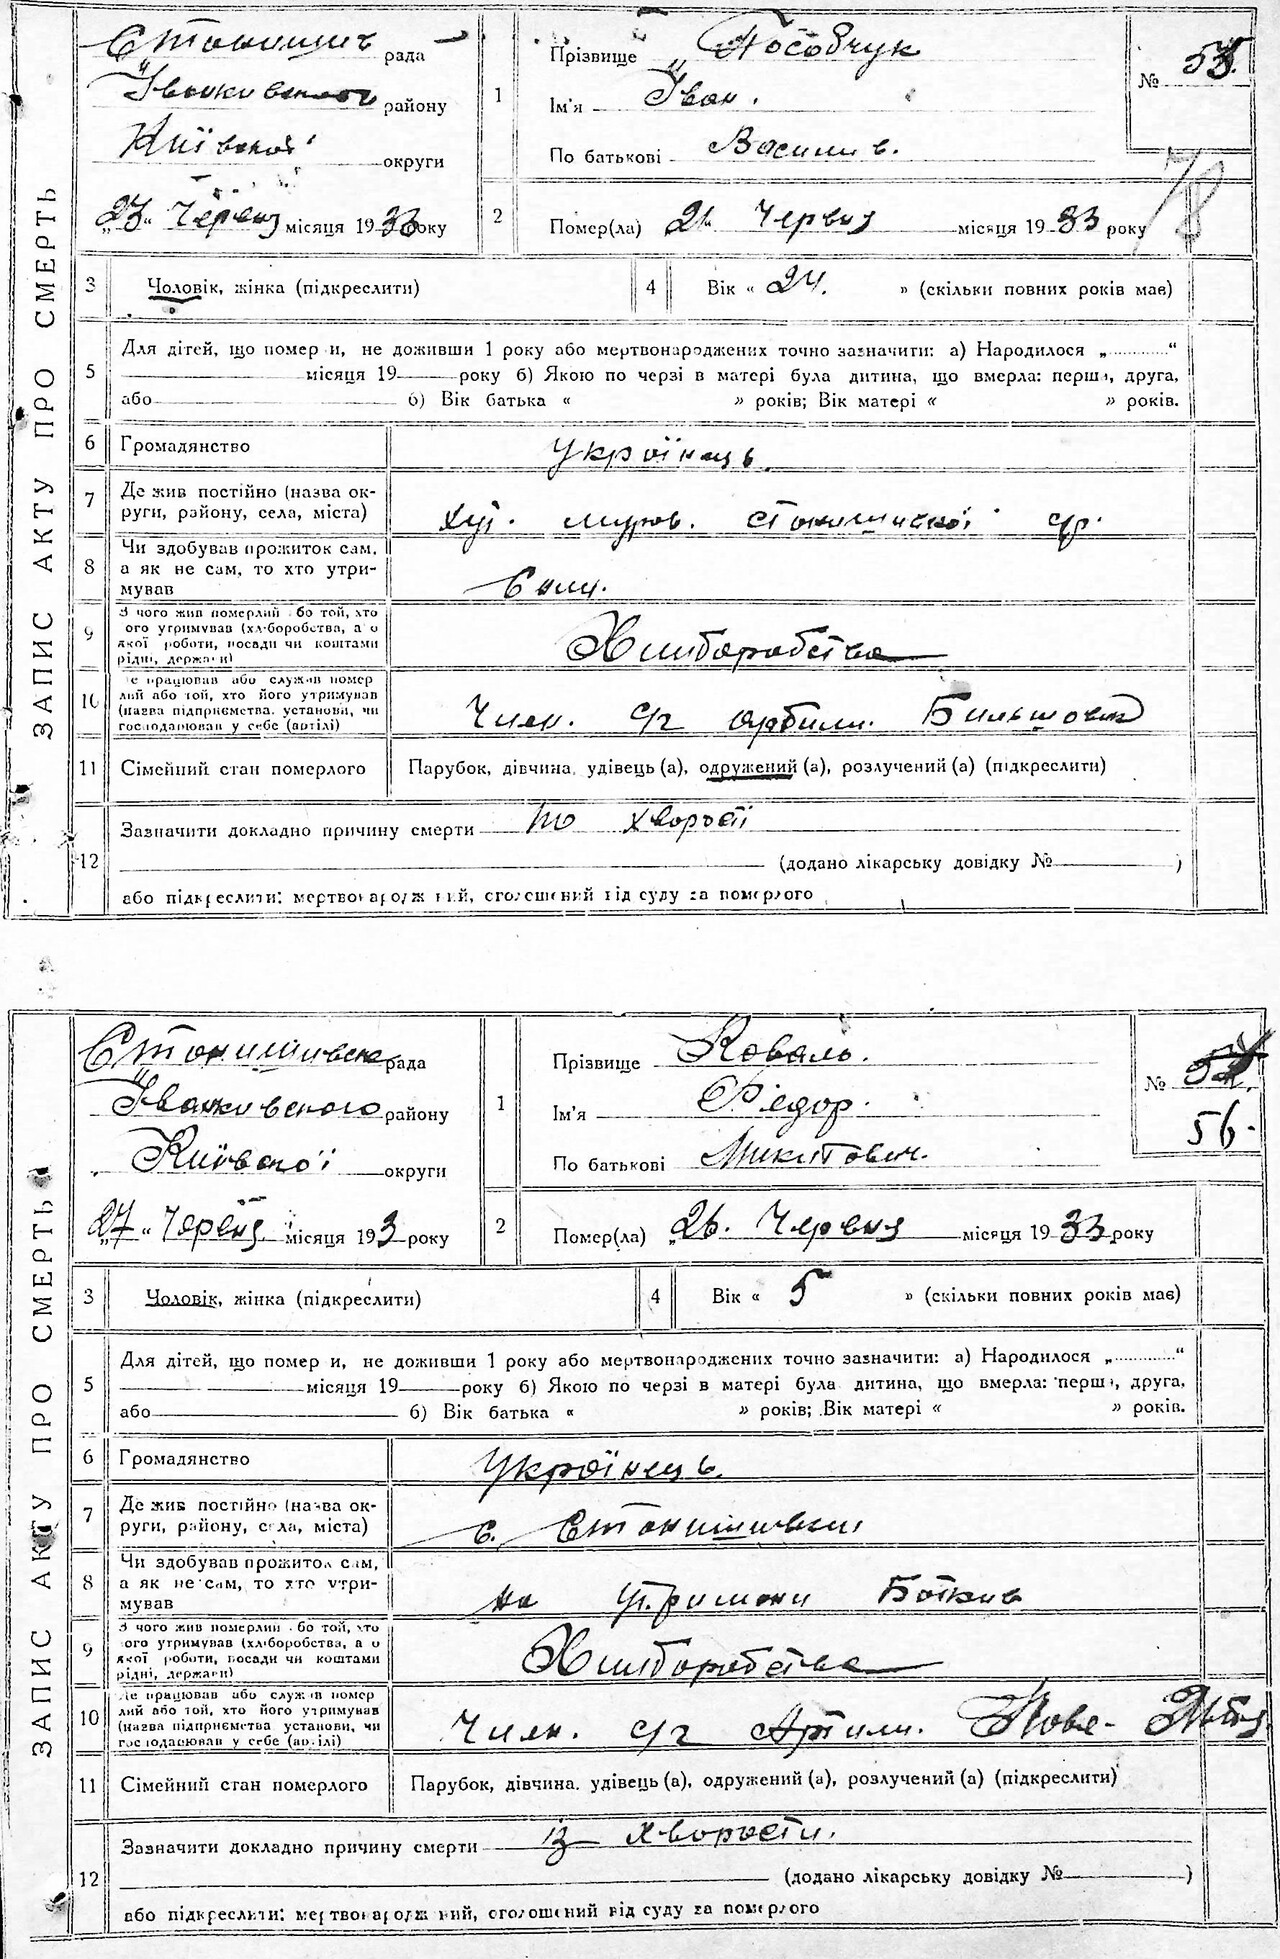 ЗАПИС АКТУ ПРО СМЕРТЬ
рада
Іванківського району
Київської округи
„23“ Червня місяця 1933 року
1
Прізвище Пособчук
Ім'я Іван.
По батькові Василів.
№ 55.
78
2
Помер(ла) 21 Червня місяця 1933 року
3 Чоловік, жінка (підкреслити)
4 Вік « 24. » (скільки повних років має)
5
Для дітей, що помер и, не доживши 1 року або мертвонароджених точно зазначити: а) Народилося „ “
місяця 19 року б) Якою по черзі в матері була дитина, що вмерла: перша, друга,
або б) Вік батька « » років; Вік матері « » років.
6 Громадянство Українець.
7 Де жив постійно (назва ок-
руги, району, села, міста) хут.
8 Чи здобував прожиток сам,
а як не сам, то хто утри-
мував
9 З чого жив померлий або той, хто
його утримував (хліборобства, а о
якої роботи, посади чи коштами
рідні, держави) Хлиборобства
10 Де працював або служив помер
лий або той, хто його утримував
(назва підприємства, установи, чи
господарював у себе (артілі) Член. с/г
11 Сімейний стан померлого Парубок, дівчина, удівець (а), одружений (а), розлучений (а) (підкреслити)
12 Зазначити докладно причину смерти по хворості
(додано лікарську довідку № )
або підкреслити: мертвонароджений, оголошений від суду за померлого
ЗАПИС АКТУ ПРО СМЕРТЬ
рада
Іванківського району
Київської округи
„27“ Червня місяця 193 року
1
Прізвище Коваль.
Ім'я Федор.
По батькові Микитович.
№
56.
2
Помер(ла) 26. Червня місяця 1933 року
3 Чоловік, жінка (підкреслити)
4 Вік « 5 » (скільки повних років має)
5
Для дітей, що помер и, не доживши 1 року або мертвонароджених точно зазначити: а) Народилося „ “
місяця 19 року б) Якою по черзі в матері була дитина, що вмерла: перша, друга,
або б) Вік батька « » років; Вік матері « » років.
6 Громадянство Українець.
7 Де жив постійно (назва ок-
руги, району, села, міста) с.
8 Чи здобував прожиток сам,
а як не сам, то хто утри-
мував на утримани Батьків
9 З чого жив померлий або той, хто
його утримував (хліборобства, а о
якої роботи, посади чи коштами
рідні, держави) Хлиборобства
10 Де працював або служив помер
лий або той, хто його утримував
(назва підприємства установи, чи
господарював у себе (артілі) Член. с/г Артили.
11 Сімейний стан померлого Парубок, дівчина, удівець (а), одружений (а), розлучений (а) (підкреслити)
12 Зазначити докладно причину смерти із хворости.
(додано лікарську довідку № )
або підкреслити: мертвонароджений, оголошений від суду за померлого